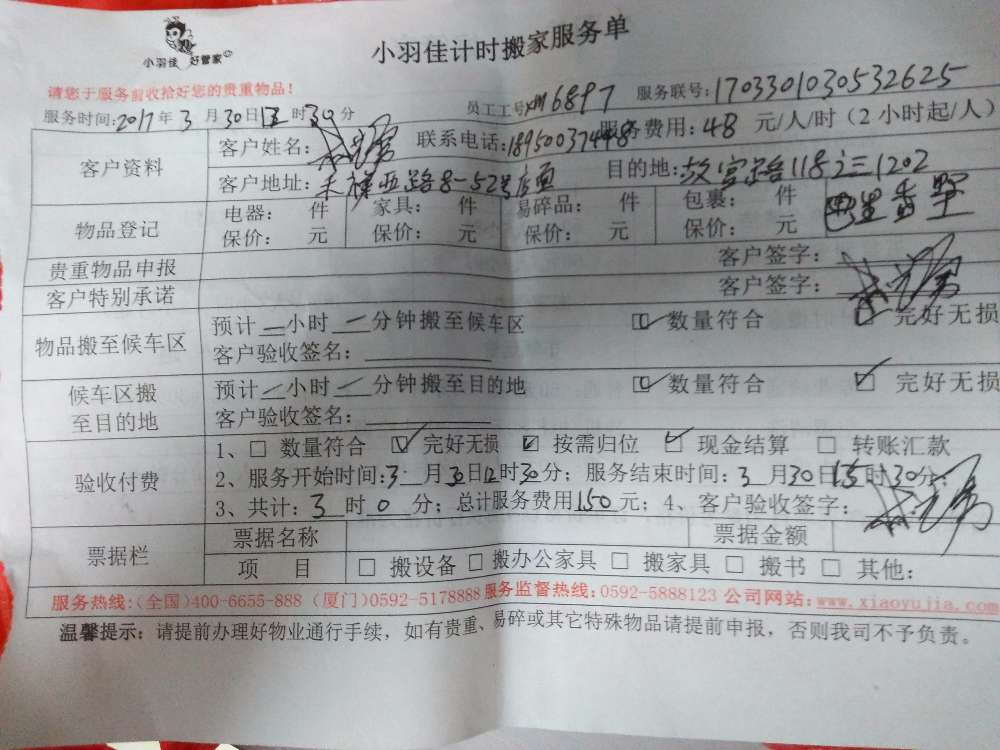 小羽佳 好管家
小羽佳计时搬家服务单
请您于服务前收拾好您的贵重物品!
服务时间:2017年3月30日12时30分 员工工号xm6897 服务联号:170330103053262​5
客户资料 客户姓名: 联系电话:18950037448 服务费用:48元/人/时(2小时起/人)
客户地址: 路8-52号店面 目的地:故宫路118之三1202
物品登记 电器: 件 家具: 件 易碎品: 件 包裹: 件
保价: 元 保价: 元 保价: 元 保价: 元
贵重物品申报 客户签字:
客户特别承诺 客户签字:
物品搬至候车区 预计一小时一分钟搬至候车区 数量符合 完好无损
客户验收签名:
候车区搬至目的地 预计一小时一分钟搬至目的地 数量符合 完好无损
客户验收签名:
验收付费 1、□ 数量符合 ☑ 完好无损 ☑ 按需归位 ☑ 现金结算 □ 转账汇款
2、服务开始时间:3月30日12时30分; 服务结束时间:3月30日15时30分;
3、共计:3时0分; 总计服务费用150元; 4、客户验收签字:
票据栏 票据名称 票据金额
项 目 □ 搬设备 □ 搬办公家具 □ 搬家具 □ 搬书 □ 其他:
服务热线:(全国)400-6655-888 (厦门)0592-5178888 服务监督热线:0592-5888123 公司网站:www.xiaoyujia.com
温馨提示:请提前办理好物业通行手续,如有贵重、易碎或其它特殊物品请提前申报,否则我司不予负责。